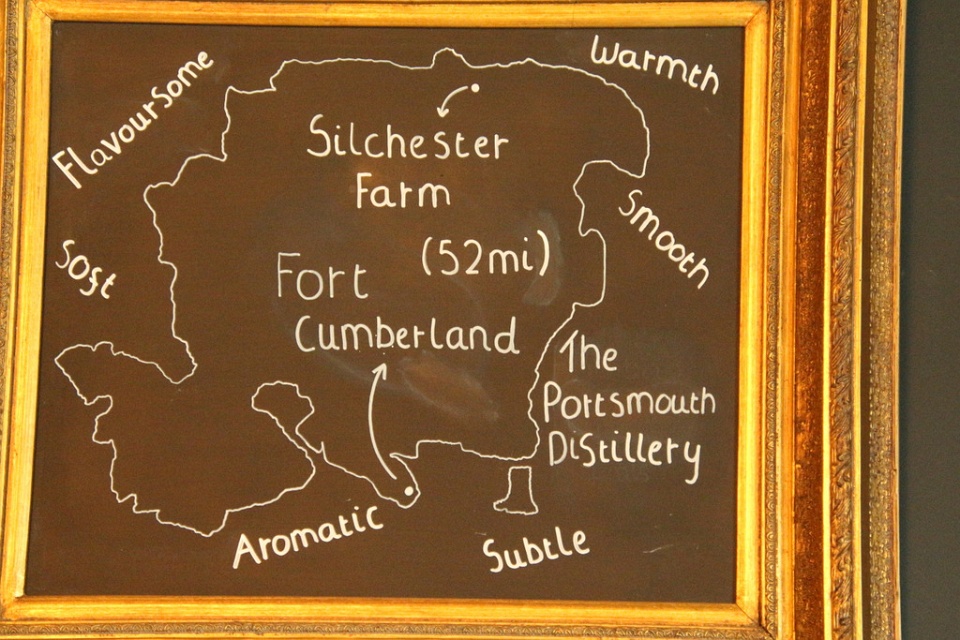 Flavoursome
Warmth
Silchester
Farm
Smooth
Soft
(52mi)
Fort
Cumberland
The
Portsmouth
Distillery
Aromatic
Subtle